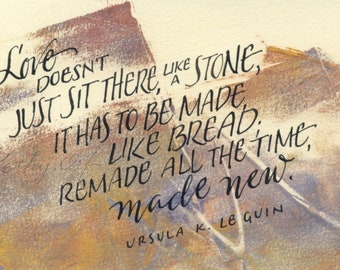 Love
DOESN'T
JUST SIT THERE, LIKE A STONE,
IT HAS TO BE MADE,
LIKE BREAD;
REMADE ALL THE TIME,
made new.
URSULA K. LE GUIN